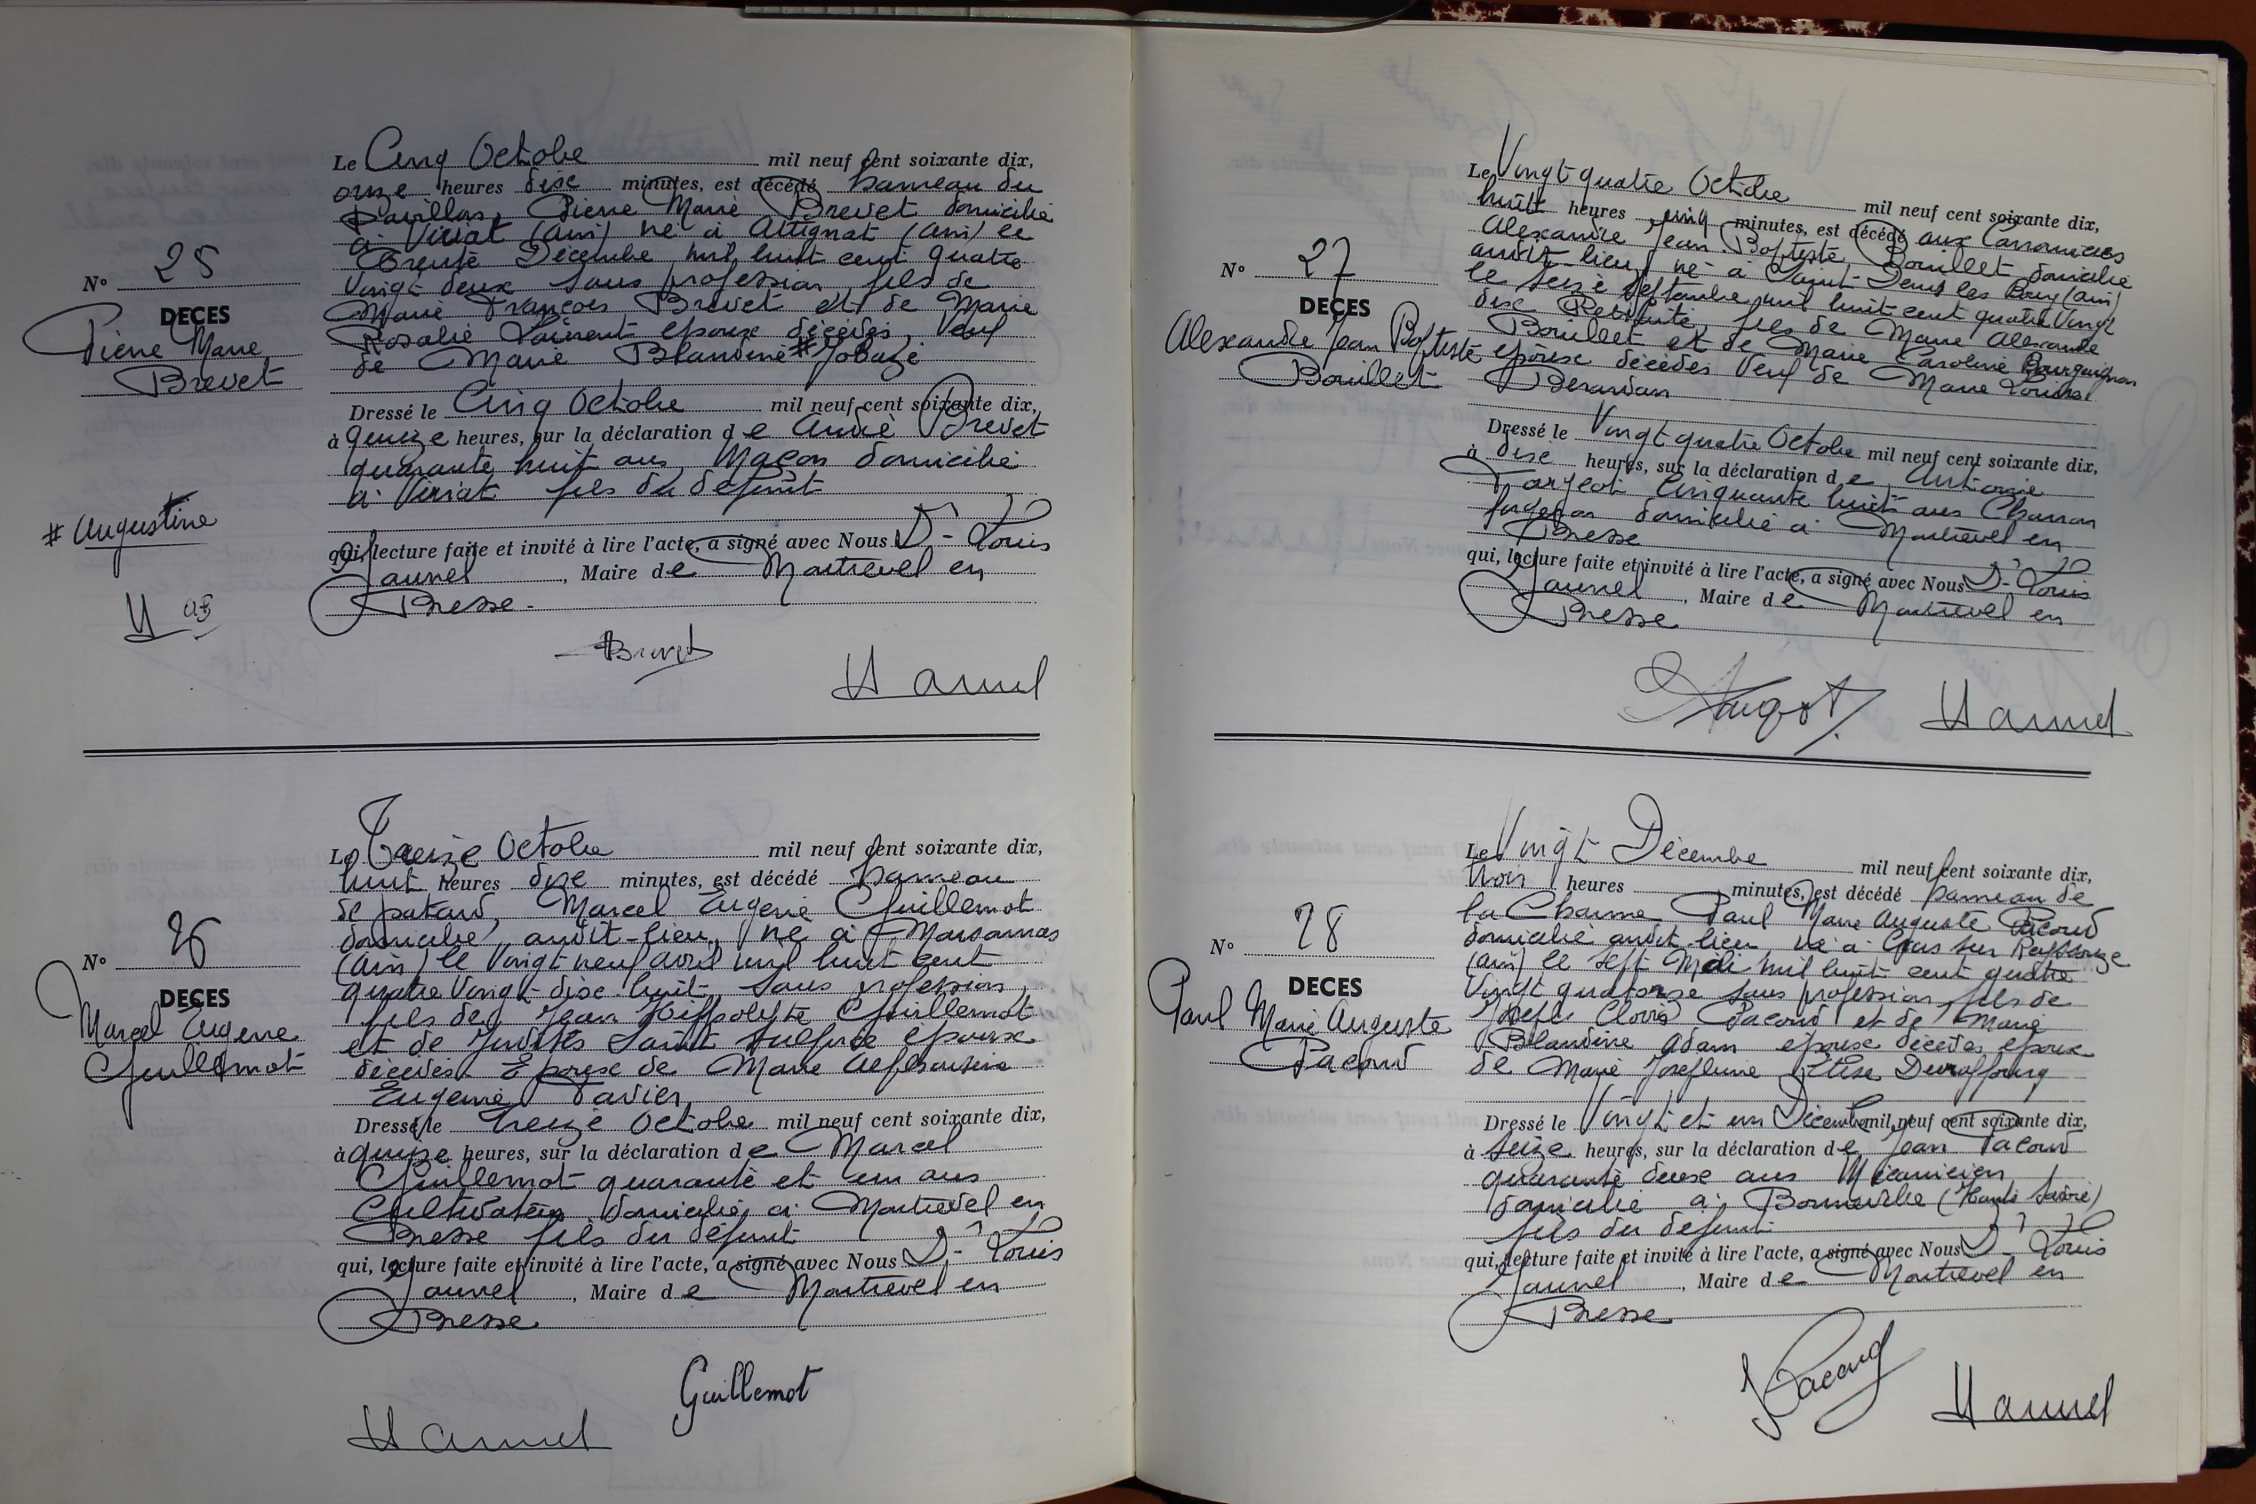 N° 25
DECES
Pierre Marie
Brevet
# Augustine
Le Cinq Octobre mil neuf cent soixante dix,
onze heures dix minutes, est décédé hameau du
Pavillon, Pierre Marie Brevet domicilié
à Viriat (Ain) né à Attignat (Ain) le
Trente Décembre mil huit cent quatre
vingt deux sans profession, fils de
Marie François Brevet et de Marie
Rosalie époux décédés, Veuf
de Marie Blandine #
Dressé le Cinq Octobre mil neuf cent soixante dix,
à quinze heures, sur la déclaration de André Brevet
quarante huit ans, Maçon domicilié
à Viriat fils du défunt
qui, lecture faite et invité à lire l'acte, a signé avec Nous Dr Louis
Jaunel, Maire de Montrevel en
Bresse.
Brevet
N° 26
DECES
Marcel Eugene
Guillemot
Le Treize Octobre mil neuf cent soixante dix,
huit heures dix minutes, est décédé hameau
de Marcel Eugene Guillemot
domicilié audit-lieu, né à Marsonnas
(Ain) le Vingt neuf avril mil huit cent
quatre Vingt-dix-huit sans profession,
fils de Jean Hippolyte Guillemot
et de Saint Sulpice époux
décédés. Epoux de Marie Alphonsine
Eugenie Favier,
Dressé le treize Octobre mil neuf cent soixante dix,
à quinze heures, sur la déclaration de Marcel
Guillemot quarante et un ans
Cultivateur domicilié à Montrevel en
Bresse fils du défunt
qui, lecture faite et invité à lire l'acte, a signé avec Nous Dr Louis
Jaunel, Maire de Montrevel en
Bresse
Guillemot
N° 27
DECES
Alexandre Jean Baptiste
Bouillet
Le Vingt quatre Octobre mil neuf cent soixante dix,
huit heures cinq minutes, est décédé aux
Alexandre Jean Baptiste Bouillet domicilié
audit-lieu, né à Saint-Denis les Bourg (Ain)
le Seize Septembre mil huit cent quatre Vingt
dix Retraité, fils de Marie Alexandre
Bouillet et de Marie Caroline Bourguignon
époux décédés Veuf de Marie Louise
Dressé le Vingt quatre Octobre mil neuf cent soixante dix,
à dix heures, sur la déclaration de Antoine
Fargeot Cinquante huit ans Charron
forgeron domicilié à Montrevel en
Bresse
qui, lecture faite et invité à lire l'acte, a signé avec Nous Dr Louis
Jaunel, Maire de Montrevel en
Bresse
N° 28
DECES
Paul Marie Auguste
Pacoud
Le Vingt Décembre mil neuf cent soixante dix,
trois heures minutes, est décédé hameau de
la Charme Paul Marie Auguste Pacoud
domicilié audit-lieu né à Cras sur Reyssouze
(Ain) le sept Mai mil huit cent quatre
Vingt quatorze sans profession, fils de
Joseph Clovis Pacoud et de Marie
Blandine Adam époux décédés époux
de Marie Josephine Elise Duraffourg
Dressé le Vingt et un Décembre mil neuf cent soixante dix,
à seize heures, sur la déclaration de Jean Pacoud
quarante deux ans Mécanicien
domicilié à Bonneville (Haute Savoie)
fils du défunt
qui, lecture faite et invité à lire l'acte, a signé avec Nous Dr Louis
Jaunel, Maire de Montrevel en
Bresse
Pacoud